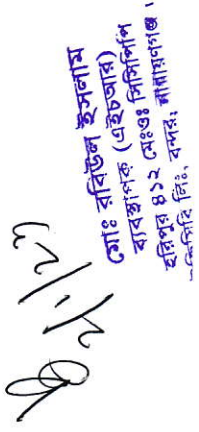 মোঃ রবিউল ইসলাম
ব্যবস্থাপক (এইচআর)
হরিপুর ৪১২ মেঃওঃ সিসিপিপি
লিঃ, বন্দর, নারায়ণগঞ্জ।